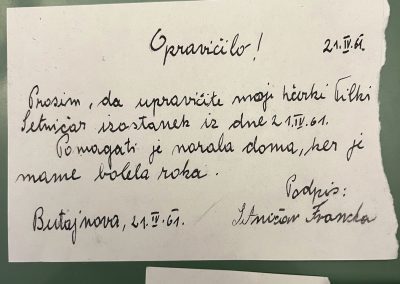 Opravičilo!
21.IV.61.
Prosim, da upravičite moji hčerki Tilki
Setničar izostanek iz dne 21.IV.61.
Pomagati je morala doma, ker je
mame bolela roka.
Podpis:
Butajnova, 21.IV.61.
Setničar Francka